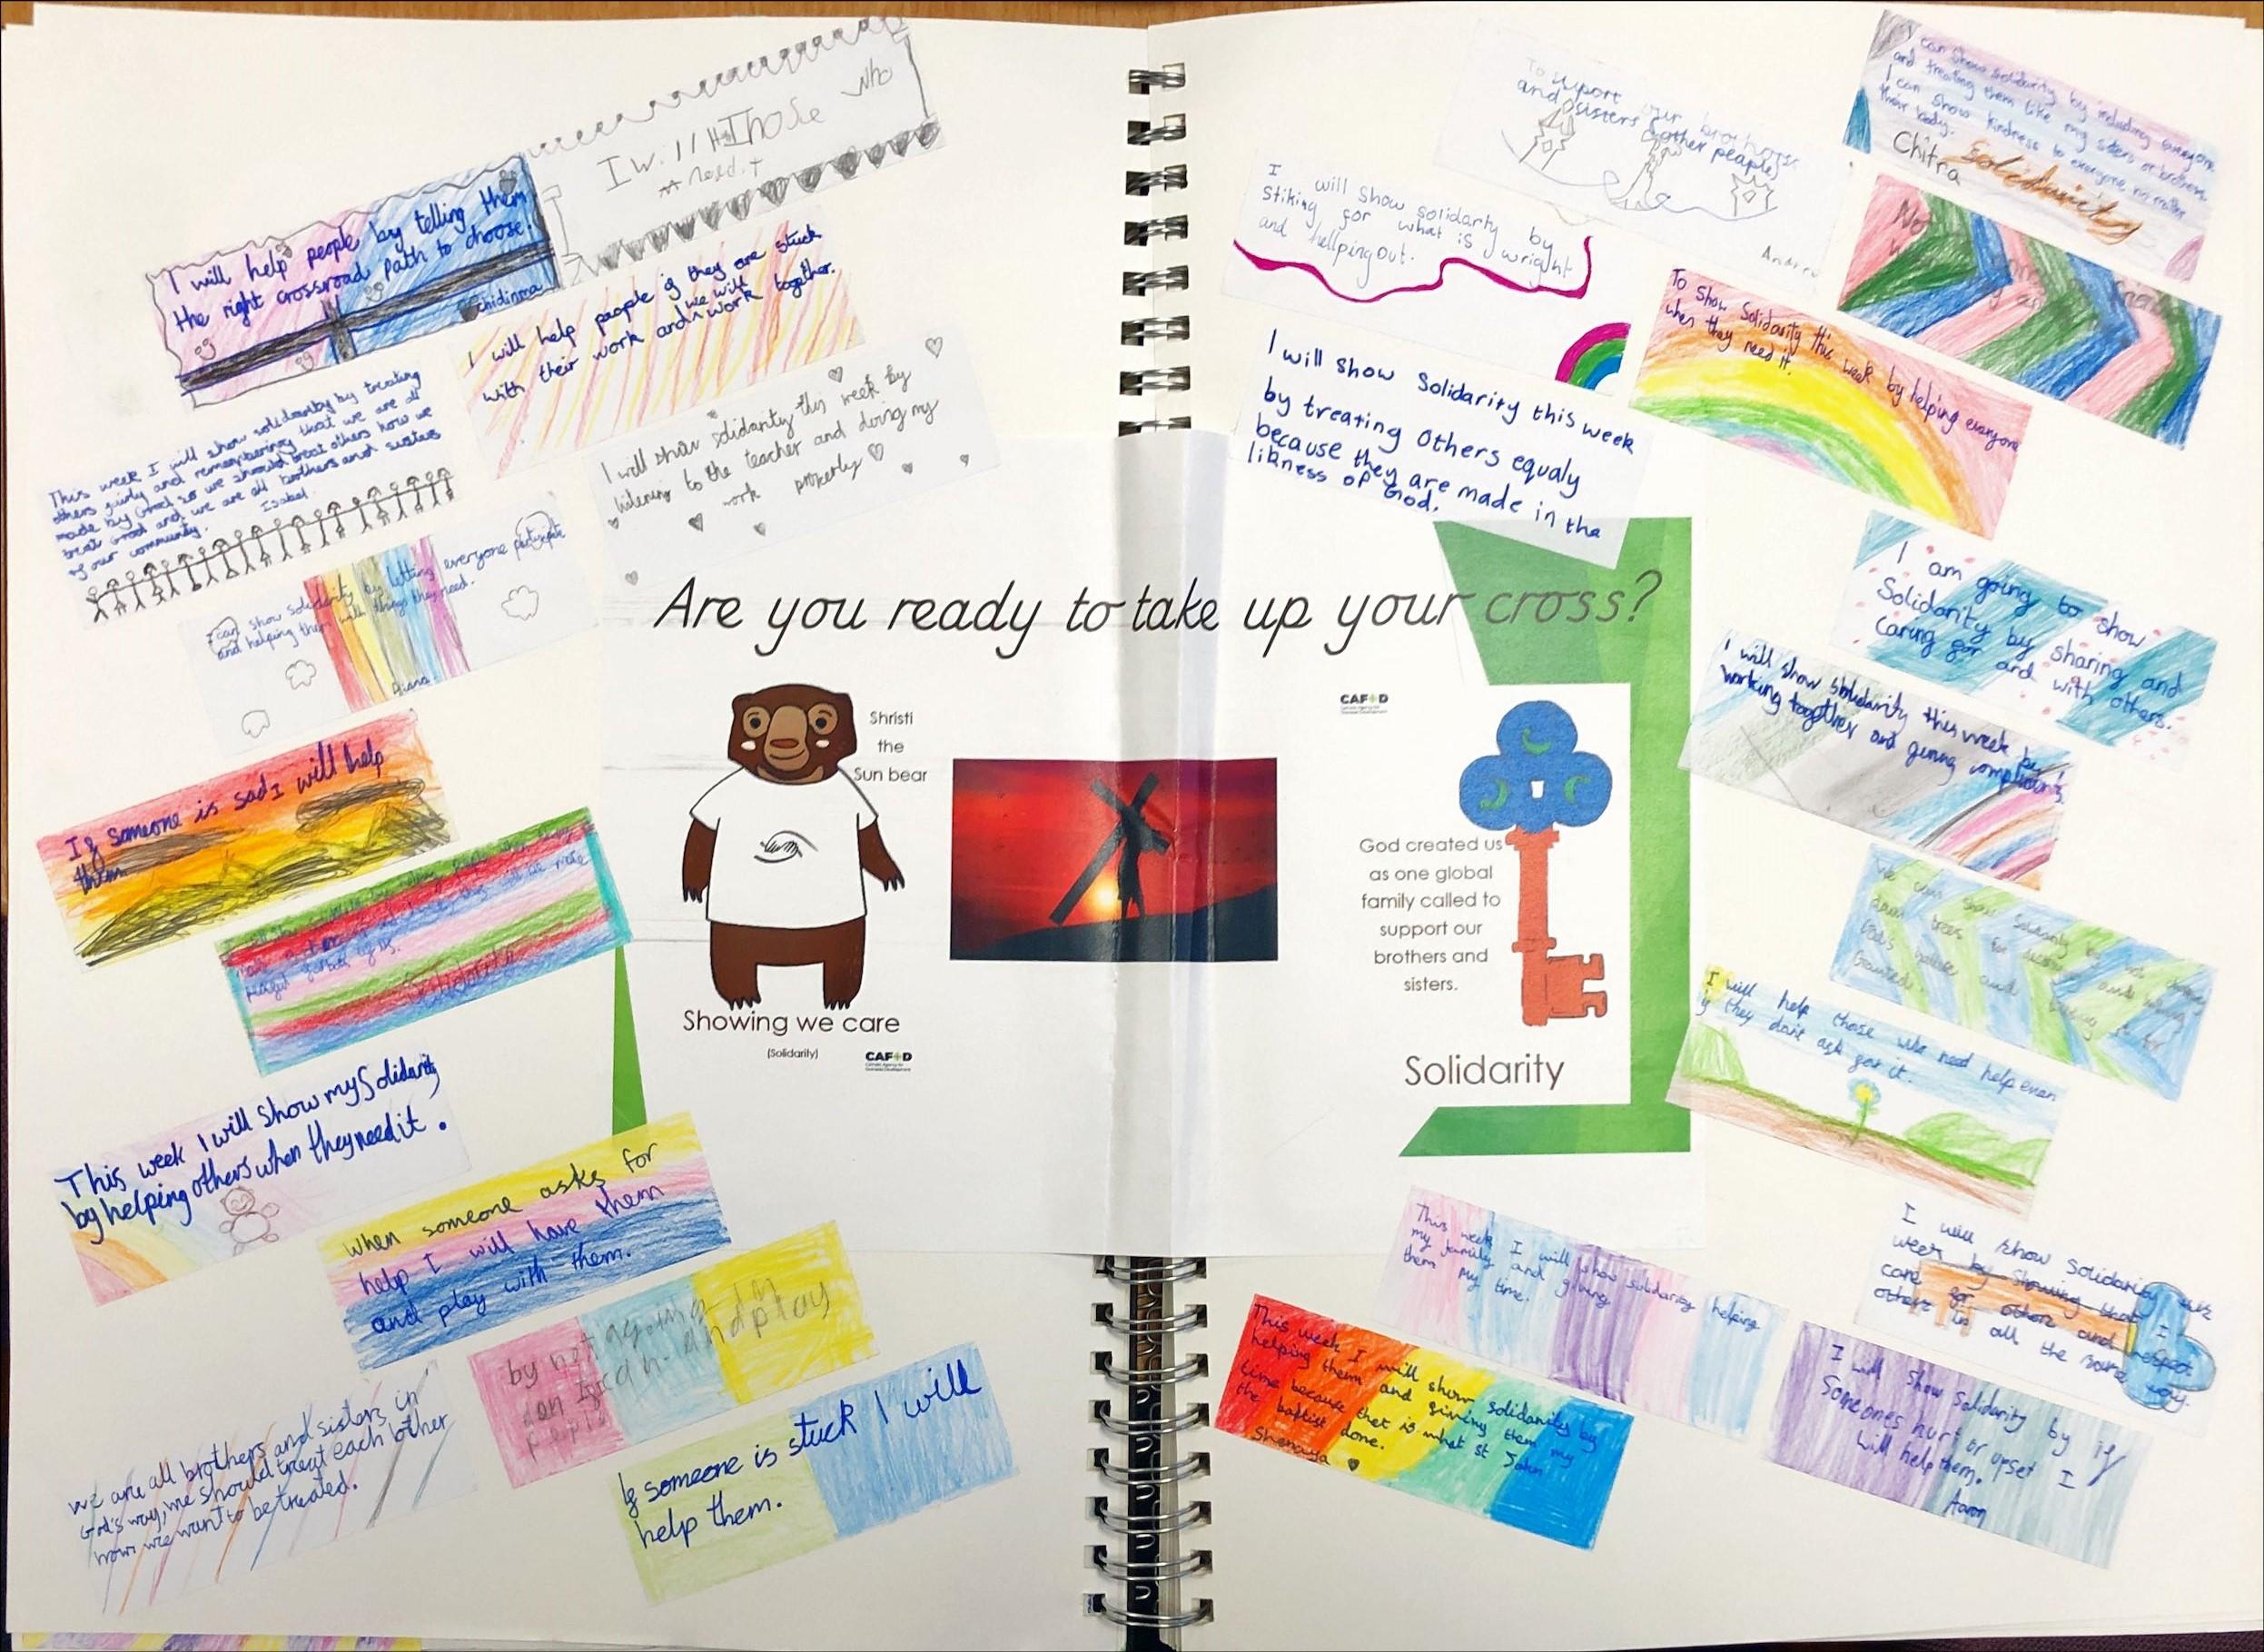 I will help people by telling them
the right crossroad path to choose.
chidinma
I will Those who
need it
I will help people if they are stuck
with their work and we will work together.
This week I will show solidarity by treating
others fairly and remembering that we are all
made by God so we should treat others how we
treat God and we are all brothers and sisters
of our community. Isabel
I will show solidarity this week by
listening to the teacher and doing my
work properly
I can show solidarity by letting everyone participate
and helping them with things they need.
Diana
If someone is sad I will help
them
Solidarity
This week I will show my Solidarity
by helping others when they need it.
When someone asks for
help I will have them
and play with them.
by not
and play
If someone is stuck I will
help them.
we are all brothers and sisters in
God's way, we should treat each other
how we want to be treated.
Are you ready to take up your cross?
Shristi
the
Sun bear
Showing we care
(Solidarity)
CAFOD
Catholic Agency for
Overseas Development
CAFOD
Catholic Agency for
Overseas Development
God created us
as one global
family called to
support our
brothers and
sisters.
Solidarity
To uport our brothers
and sisters (other peaple)
Andrew
I can show solidarity by including everyone
and treating them like my sisters or brothers.
I can show kindness to everyone no matter
their body.
Chitra Solidarity
I will show solidarty by
stiking for what is wright
and hellping out.
No
friend
To show Solidarity this week by helping everyone
when they need it.
I will show Solidarity this week
by treating Others equaly
because they are made in the
likness of God.
I am going to show
Solidarity by sharing and
caring for and with others.
I will show Solidarity this week by
working together and giving compliments
We can show Solidarity by not
down trees for
God's
I will help those who need help even
if they don't ask for it.
This week I will show solidarity helping
my family and giving
them my time.
This week I will show solidarity by
helping them and giving them my
time because that is what st John
the baptist done.
Shenaya
I will show solidarity this
week by showing that I
care for others and respect
others in all the same way.
I will show Solidarity by if
Someones hurt or upset I
will help them.
Aaron